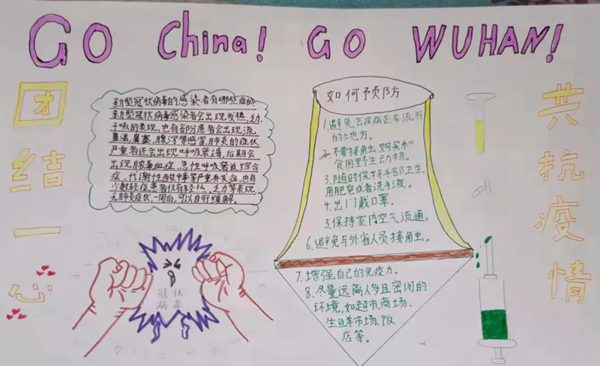 GO China! GO WUHAN!
团结一心
新型冠状病毒的感染者有哪些症状
新型冠状病毒感染者会出现发热、乏力、
干咳的表现,也有部分患者会出现流
鼻涕、
严重者还会出现呼吸衰竭,后期会
出现脓毒血症、急性呼吸窘迫综合
症、代谢性酸中毒等严重并发症,也有
少数轻症患者仅有轻热、乏力等表现
无肺炎症状,一周后,可以自行缓解。
冠状
病毒
如何预防
1.避免去疾病正在流行
的地方。
2.不要接触、购买和
食用野生动物。
3.随时保持手部卫生,
用肥皂或者洗手液。
4.出门戴口罩。
5.保持室内空气流通。
6.避免与外省人员接触。
7.增强自己的免疫力。
8.尽量远离人多且密闭的
环境,如超市商场、
生鲜市场、饭
店等。
共抗疫情